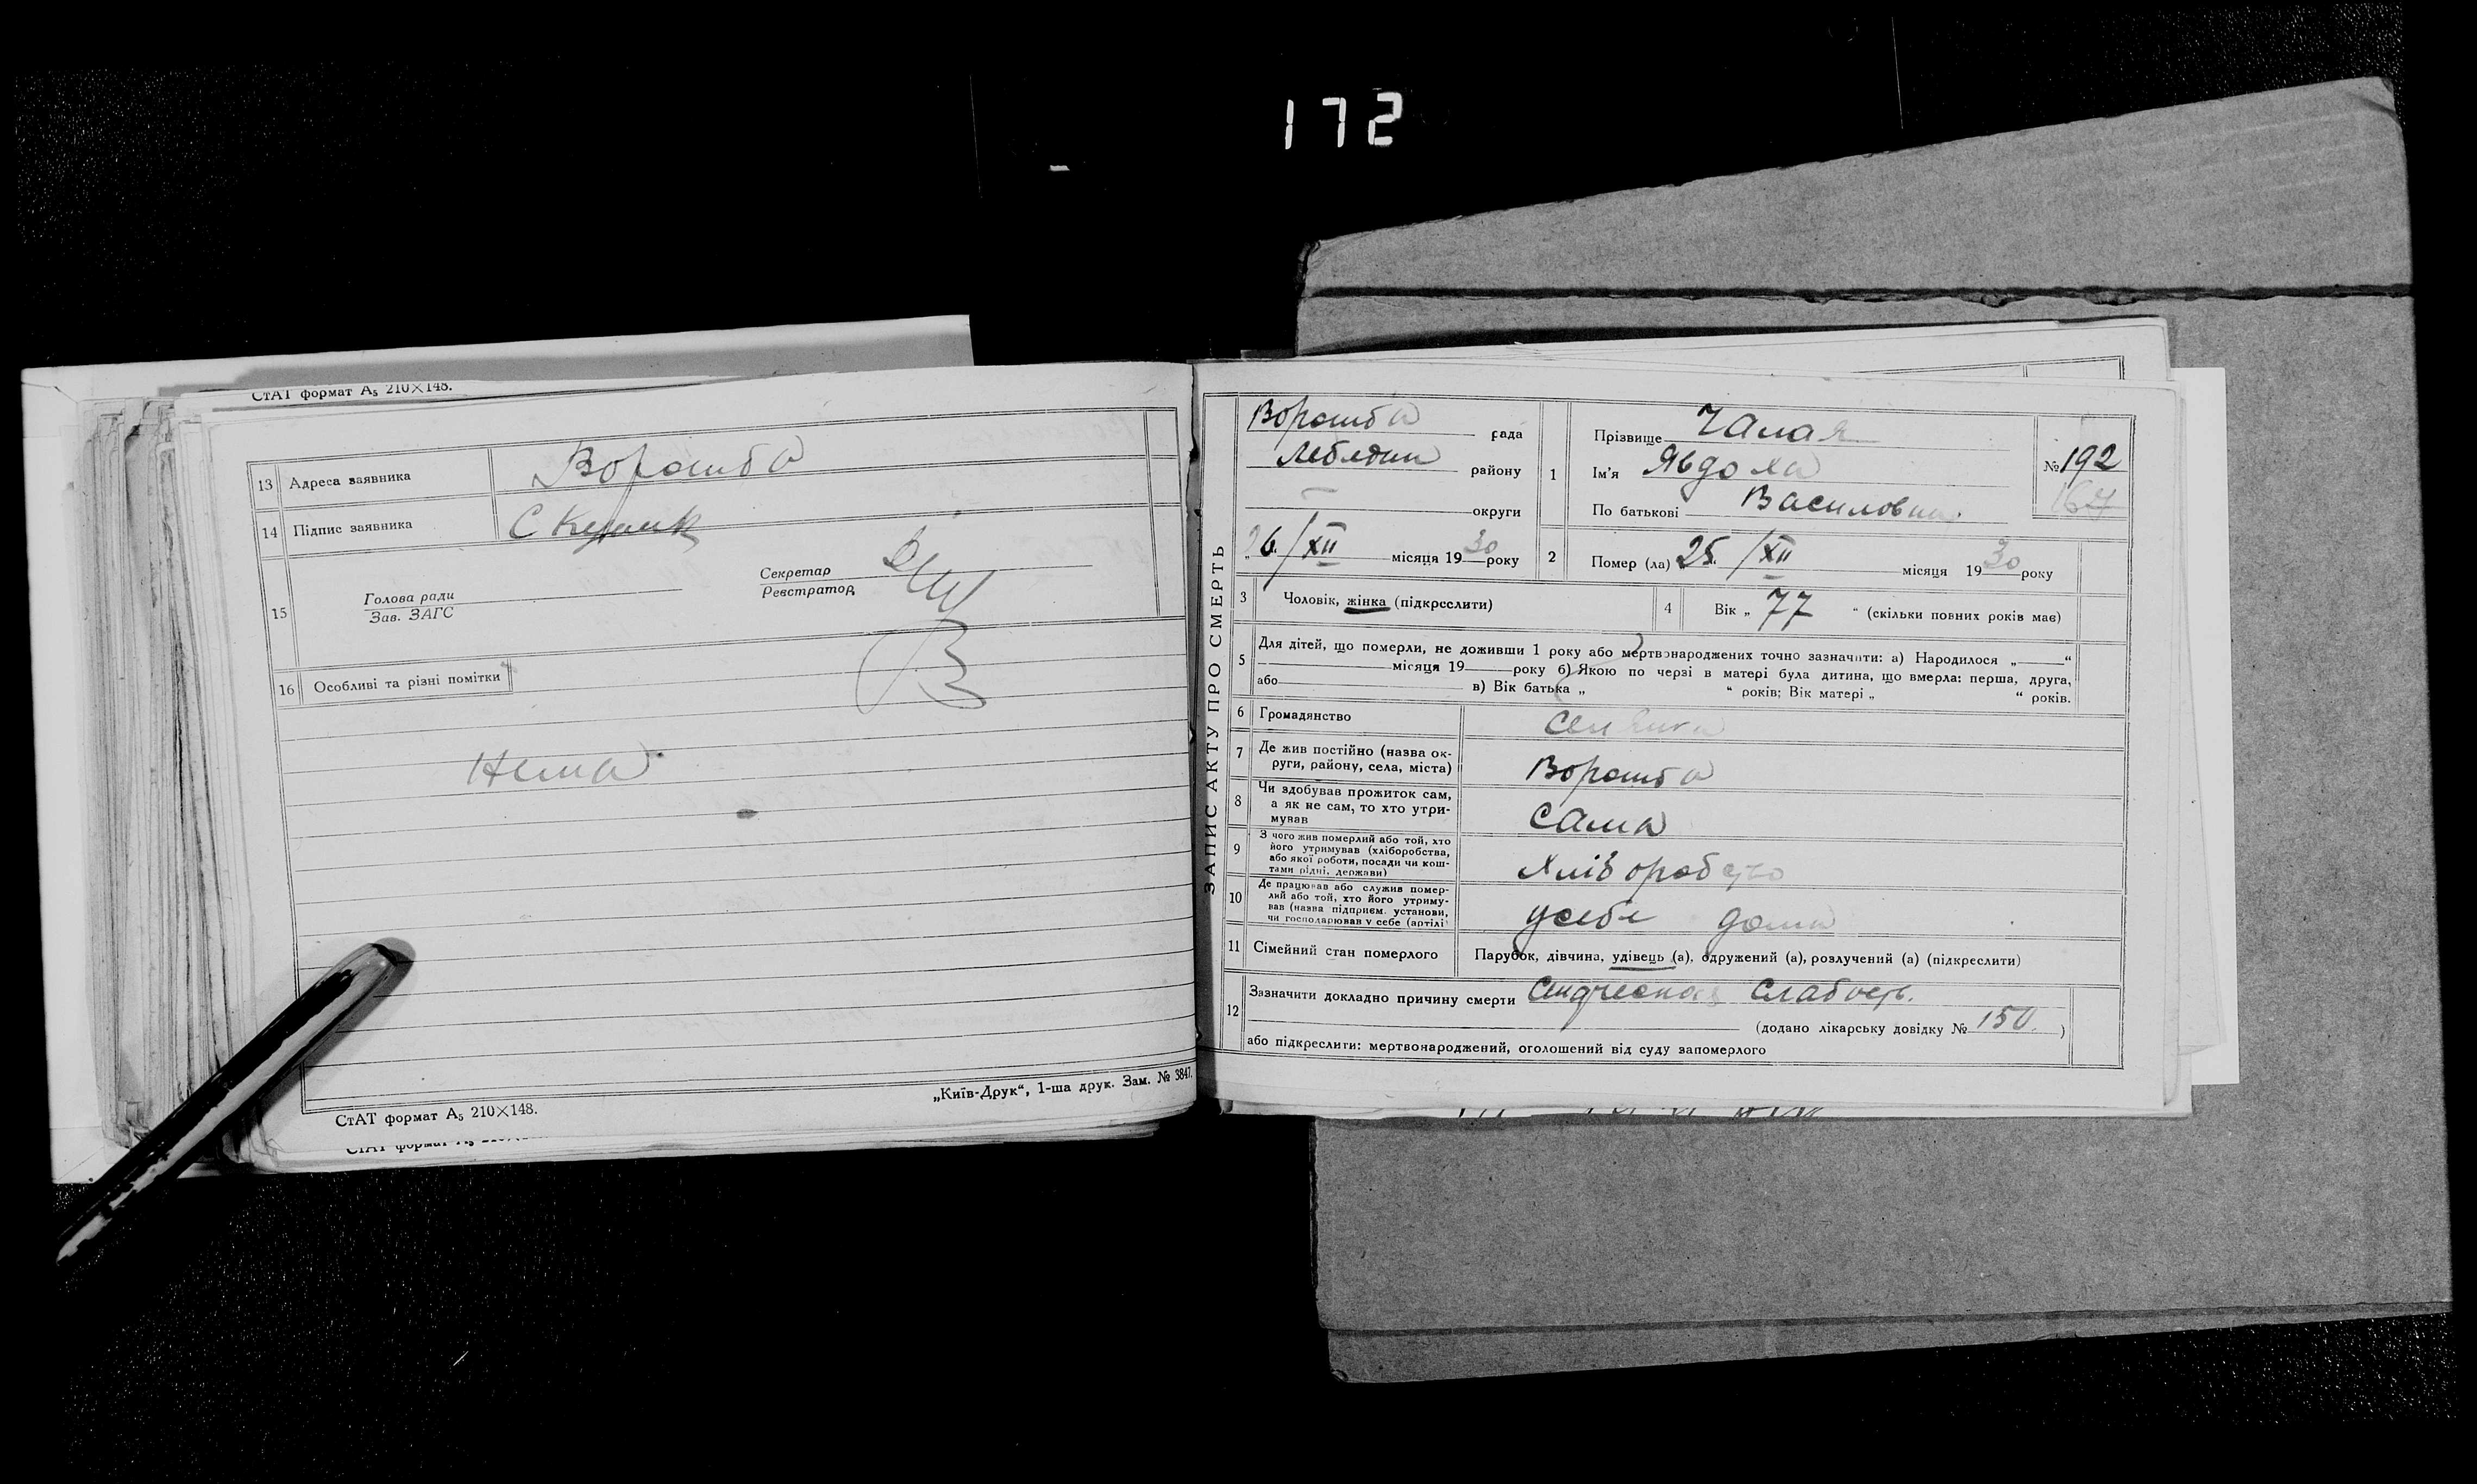 172
СтАТ формат А₅ 210×148.
13 Адреса заявника Ворожба
14 Підпис заявника С
15 Голова ради
Зав. ЗАГС
Секретар
Реєстратор
16 Особливі та різні помітки
Нема
„Київ-Друк“, 1-ша друк. Зам. № 3847.
СтАТ формат А₅ 210×148.
СтАТ формат А₅
ЗАПИС АКТУ ПРО СМЕРТЬ
Ворожба рада
Лебедин району
— округи
26/XII місяця 1930 року
1 Прізвище Чалая
Ім'я Явдоха
По батькові Василовна
№ 192
167
2 Помер (ла) 25/XII місяця 1930 року
3 Чоловік, жінка (підкреслити)
4 Вік „ 77 “ (скільки повних років має)
5 Для дітей, що померли, не доживши 1 року або мертвонароджених точно зазначити: а) Народилося „——“
——місяця 19——року б) Якою по черзі в матері була дитина, що вмерла: перша, друга,
або—— в) Вік батька „ “ років; Вік матері „ “ років.
6 Громадянство
7 Де жив постійно (назва ок-
руги, району, села, міста) Ворожба
8 Чи здобував прожиток сам,
а як не сам, то хто утри-
мував сама
9 З чого жив померлий або той, хто
його утримував (хліборобства,
або якої роботи, посади чи кош-
тами рідні, держави) Хліборобство
10 Де працював або служив помер-
лий або той, хто його утриму-
вав (назва підприєм. установи,
чи господарював у себе (артілі) усебе дома
11 Сімейний стан померлого Парубок, дівчина, удівець (а), одружений (а), розлучений (а) (підкреслити)
12 Зазначити докладно причину смерти слабость.
(додано лікарську довідку № 150. )
або підкреслити: мертвонароджений, оголошений від суду запомерлого